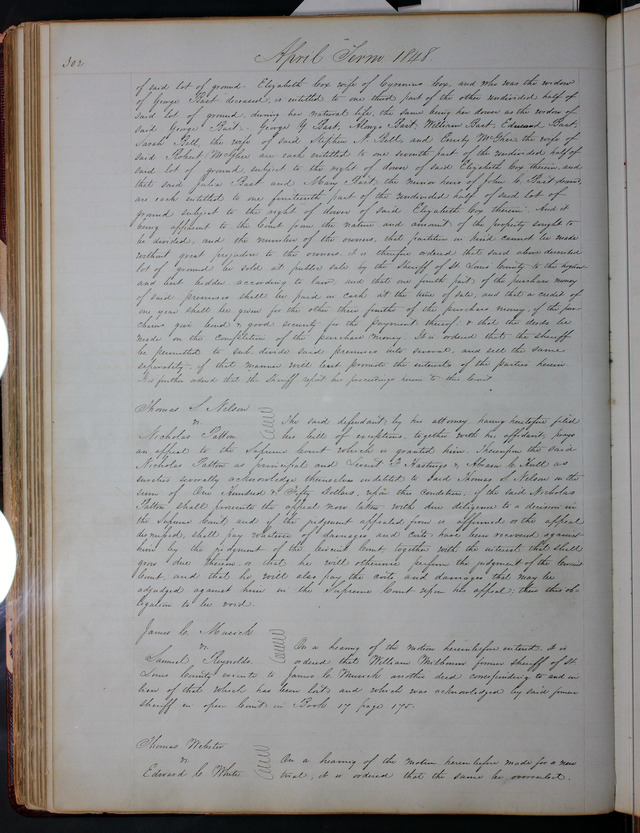 302
April Term 1848
of said lot of ground. Elizabeth Cox wife of Cox, and who was the widow
of George Bast deceased, is entitled to one third part of the other undivided half of
said lot of ground, during her natural life, the same being her dower as the widow of
said George Bast. George Y Bast, Alonzo Bast, William Bast, Edward Bast,
Sarah Bell, the wife of said Stephen N. Bell, and Emily McGhee the wife of
said Robert McGhee are each entitled to one seventh part of the undivided half of
said lot of ground subject to the right of dower of said Elizabeth Cox therein, and
that said Julia Bast and Mary Bast, the minor heirs of John C. Bast decsd,
are each entitled to one fourteenth part of the undivided half of said lot of
ground subject to the right of dower of said Elizabeth Cox therein. And it
being apparent to the Court from the nature and amount of the property sought to
be divided, and the number of the owners, that partition in kind cannot be made
without great prejudice to the owners, it is therefore ordered that said above described
lot of ground be sold at public sale by the Sheriff of St. Louis County to the highest
and best bidder according to law, and that one fourth part of the purchase money
of said premises shall be paid in cash at the time of sale, and that a credit of
one year shall be given for the other three fourths of the purchase money, if the pur-
chasers give bond & good security for the payment thereof, & that the deeds be
made on the completion of the purchase money. It is ordered that the sheriff
be permitted to sub-divide said premises into several, and sell the same
separately, if that manner will best promote the interests of the parties herein
It is further ordered that the Sheriff report his proceedings herein to this Court.
Thomas S. Nelson
vs.
Nicholas Patton
The said defendant by his attorney having heretofore filed
his bill of exceptions, together with his affidavit, prays
an appeal to the Supreme Court which is granted him. Thereupon the said
Nicholas Patton as principal and F Hastings & C. Hull as
sureties severally acknowledge themselves indebted to said Thomas S Nelson in the
sum of One Hundred & Fifty Dollars, upon this Condition, if the said Nicholas
Patton shall prosecute the appeal now taken with due diligence to a decision in
the Supreme Court, and if the judgment appealed from is affirmed or the appeal
dismissed, shall pay whatever of damages and costs have been recovered against
him by the judgment of the Circuit Court, together with the interest that shall
grow due thereon, & that he will otherwise perform the judgment of the Circuit
Court, and that he will also pay the costs and damages that may be
adjudged against him in the Supreme Court upon his appeal; then this ob-
ligation to be void.
James C. Musick
vs.
Samuel Reynolds.
On a hearing of the motion hereinbefore entered, it is
ordered that William Milburn former sheriff of St.
Louis County execute to James C. Musick another deed corresponding to and in
lieu of that which has been lost, and which was acknowledged by said former
sheriff in open Court in Book 17 page 175.
Thomas Webster
vs.
Edward C. White
On a hearing of the motion hereinbefore made for a new
trial, it is ordered that the same be overruled.